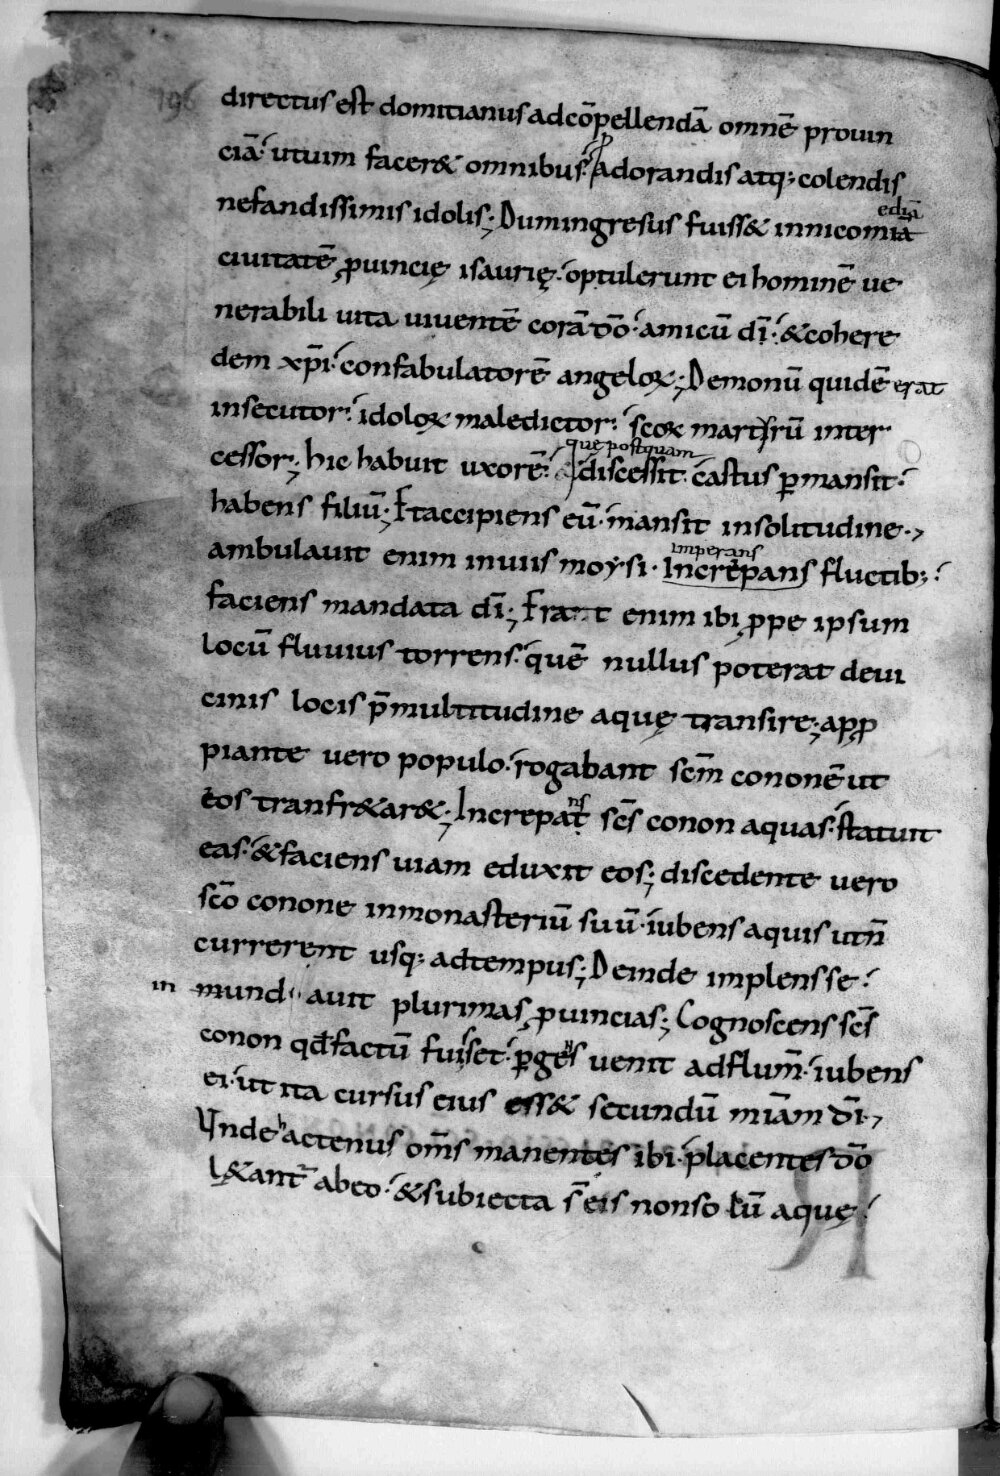 196
directus est domitianus adcōpellendā omnē prouin
ciā· utuim facer& omnibus· adorandis atq; colendis
nefandissimis idolis; Dumingresus fuiss& innicomia
ediā
ciuitatē ꝓuincię isaurię· optulerunt ei hominē ue
nerabili uita uiuentē corā dō· amicū dī· &cohere
dem xp̄i· confabulatorē angeloꝝ; Demonū quidē erat
insecutor· idoloꝝ maledictor· scōꝝ martyrū inter
cessor; hic habuit uxorē· discessit· castus ꝑmansit·
quę postquam
habens filiū; Itaccipiens eū· mansit insolitudine·,
ambulauit enim inuiis moysi· Increpans fluctib;·
imperans
faciens mandata dī; Erat enim ibi ꝓpe ipsum
locū fluuius torrens· quē nullus poterat deui
cinis locis p̄multitudine aquę transire; apꝓ
piante uero populo· rogabant scm̄ cononē ut
eos tranfr&ar&; Increpat scs̄ conon aquas· statuit
ns
eas· &faciens uiam eduxit eos; discedente uero
scō conone inmonasteriū suū· iubens aquis utn̄
currerent usq; adtempus; Deinde implens se·
in mund auit plurimas ꝓuincias; Cognoscens scs̄
conon qđ factū fuisset· ꝑgens uenit adflum̄· iubens
ei· ut ita cursus eius ess& secundū miām dī·,
Unde hactenus om̄s manentes ibi· placentes dō
l&ant̄ abeo· &subiecta s̄ eis nonso lū aquę·